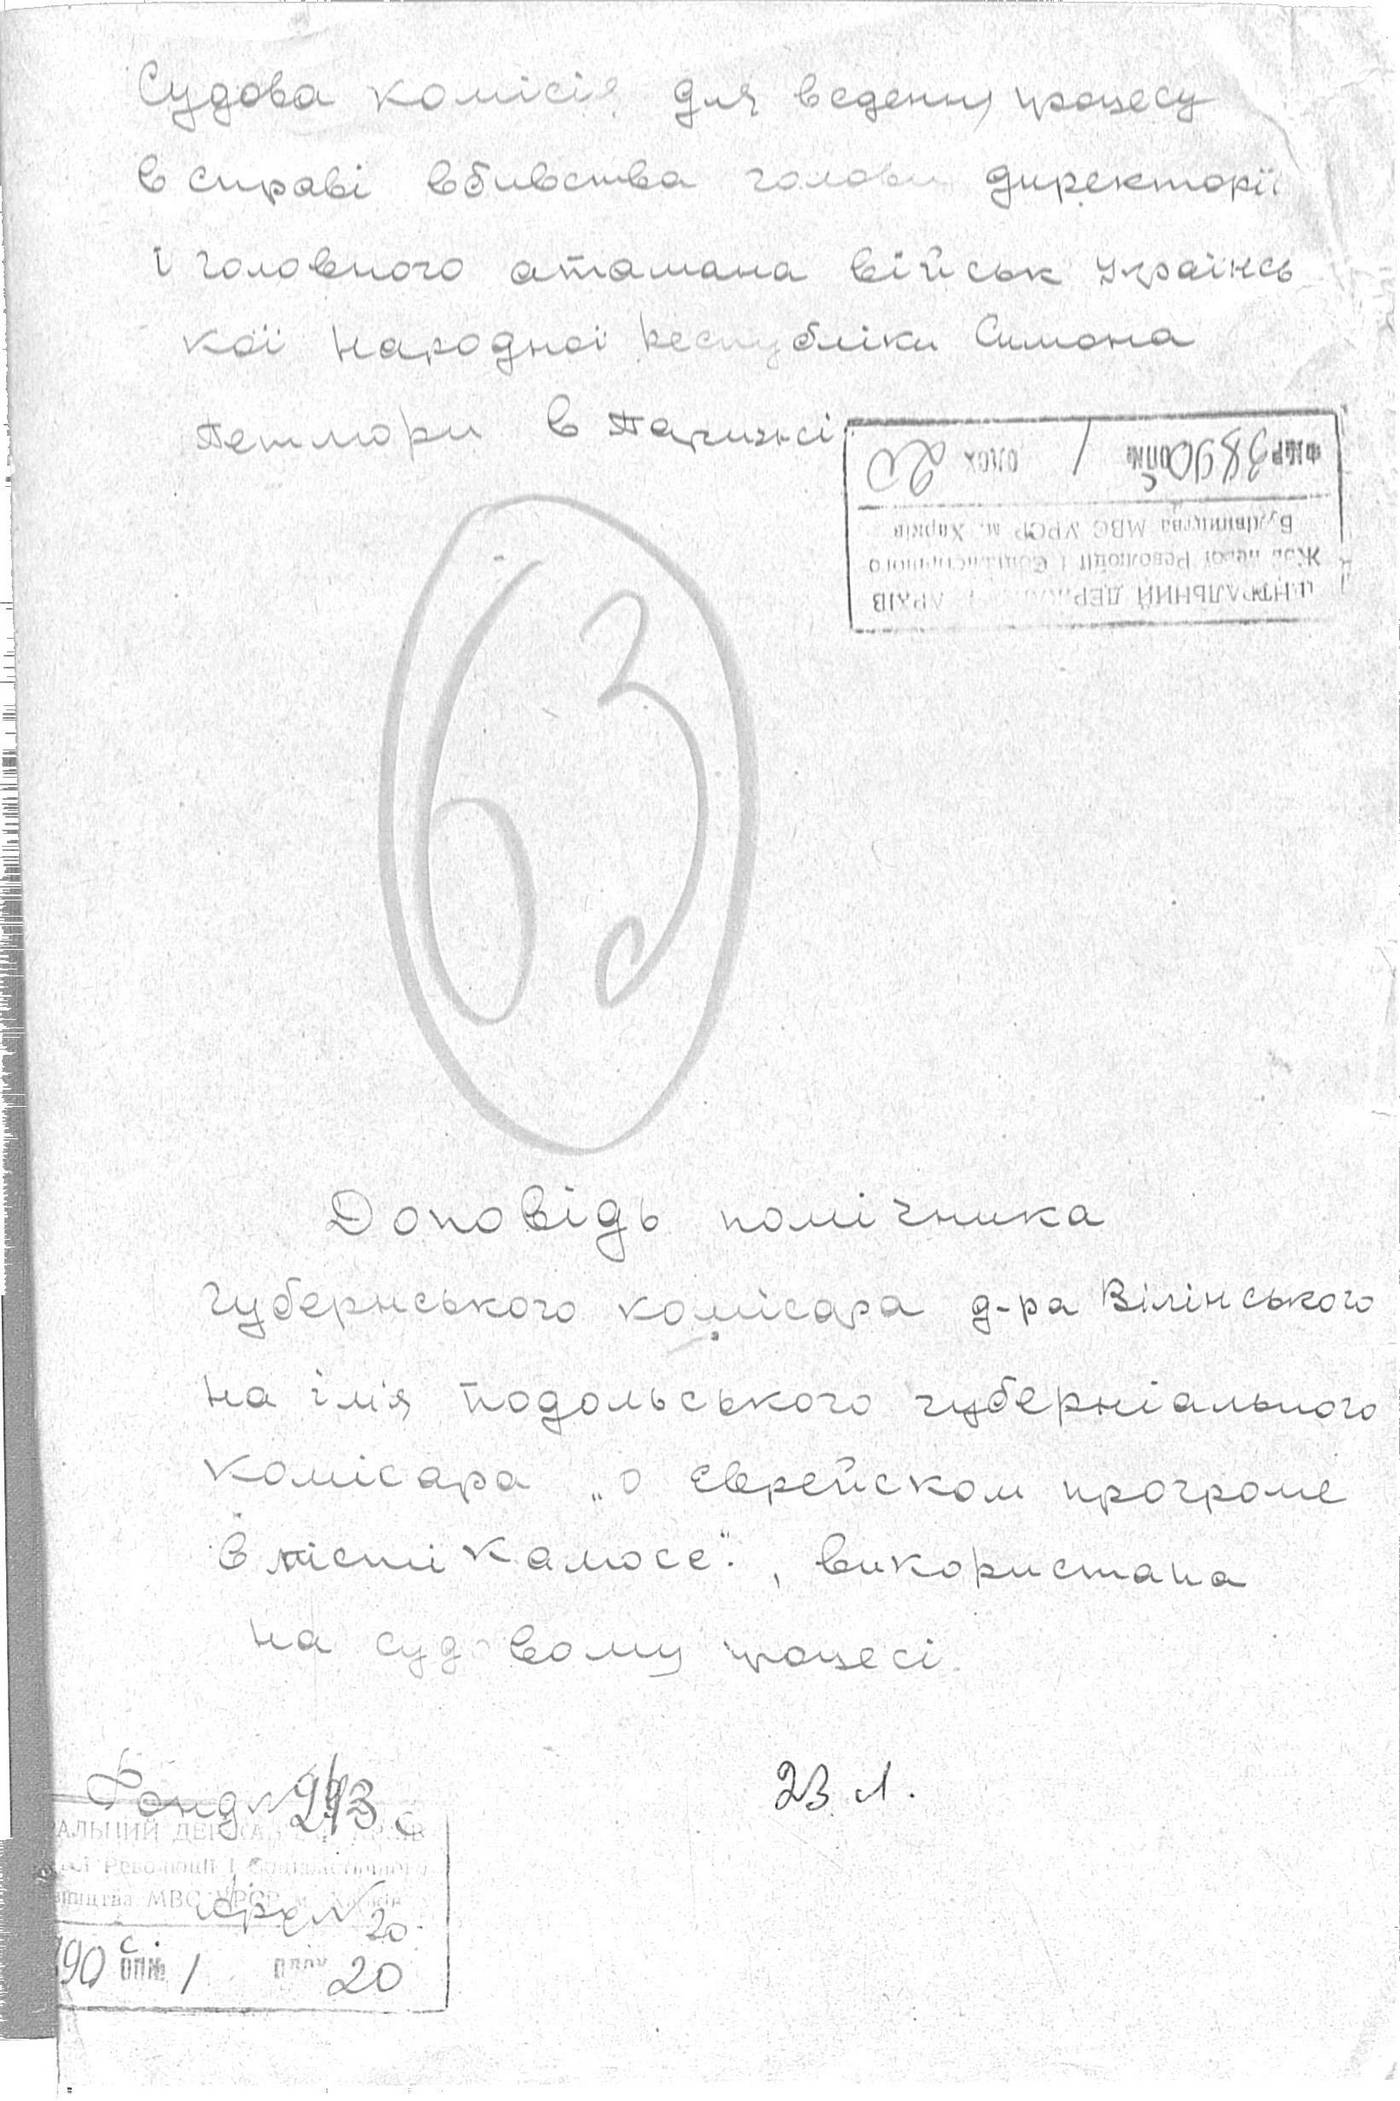 Судова комісія для ведення процесу
в справі вбивства голови директорії
і головного атамана військ українсь
кої народної республіки Симона
Петлюри в Парижі
ФКСР 3890с ОПИС 1 ОДСХ 20
Будівництва МВС УРСР м. Харків
Жов невої Революції і Соціалістичного
ЦЕНТРАЛЬНИЙ ДЕРЖАВНИЙ АРХІВ
63
Доповідь помічника
губернського комісара д-ра Вілінського
на ім'я подольського губерніального
комісара „о еврейском прогроме
в місті Калюсе"., використана
на судовому процесі.
23 л.
Фонд №
РАЛЬНИЙ ДЕРЖАВНИЙ АРХІВ
вої Революції і Соціалістичного
вництва МВС УРСР м. Харків
№ 20
890 с. ОПИС 1 20